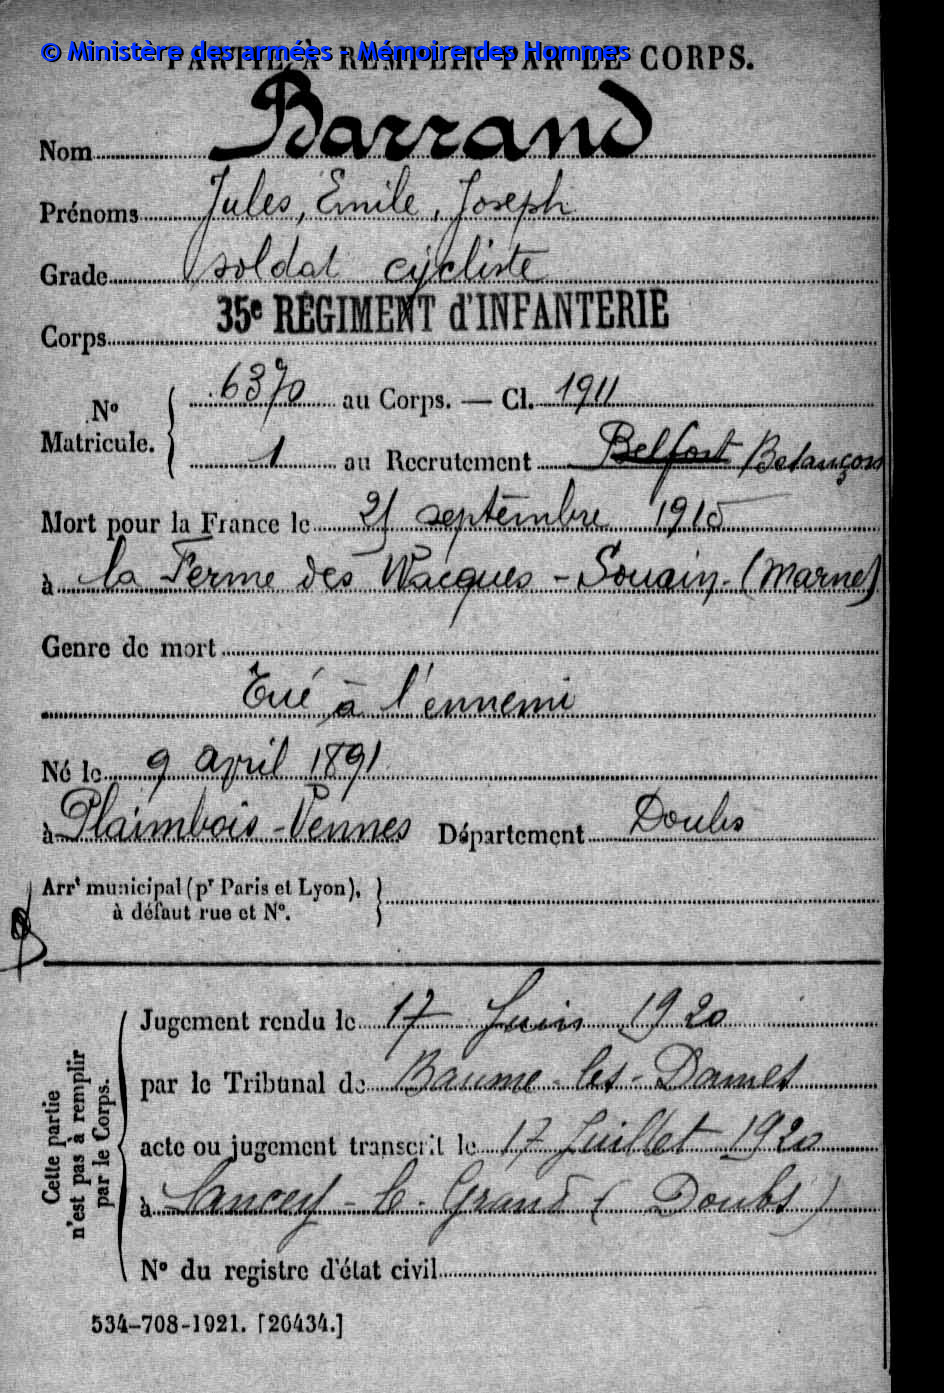 © Ministère des armées - Mémoire des Hommes
PARTIE À REMPLIR PAR LE CORPS.
Nom Barrand
Prénoms Jules, Emile, Joseph
Grade soldat cycliste
Corps 35e RÉGIMENT d'INFANTERIE
No Matricule. 6370 au Corps. — Cl. 1911
1 au Recrutement Belfort Besançon
Mort pour la France le septembre 1915
à la Ferme des Wacques - Souain - (Marne)
Genre de mort
Tué à l'ennemi
Né le 9 avril 1891
à Plaimbois-Vennes Département Doubs
Arrt municipal (pr Paris et Lyon),
à défaut rue et No.
Cette partie
n'est pas à remplir
par le Corps.
Jugement rendu le 17 Juin 1920
par le Tribunal de Baume-les-Dames
acte ou jugement transcrit le 17 Juillet 1920
à Sancey-le-Grand (Doubs)
No du registre d'état civil
534-708-1921. [26434.]